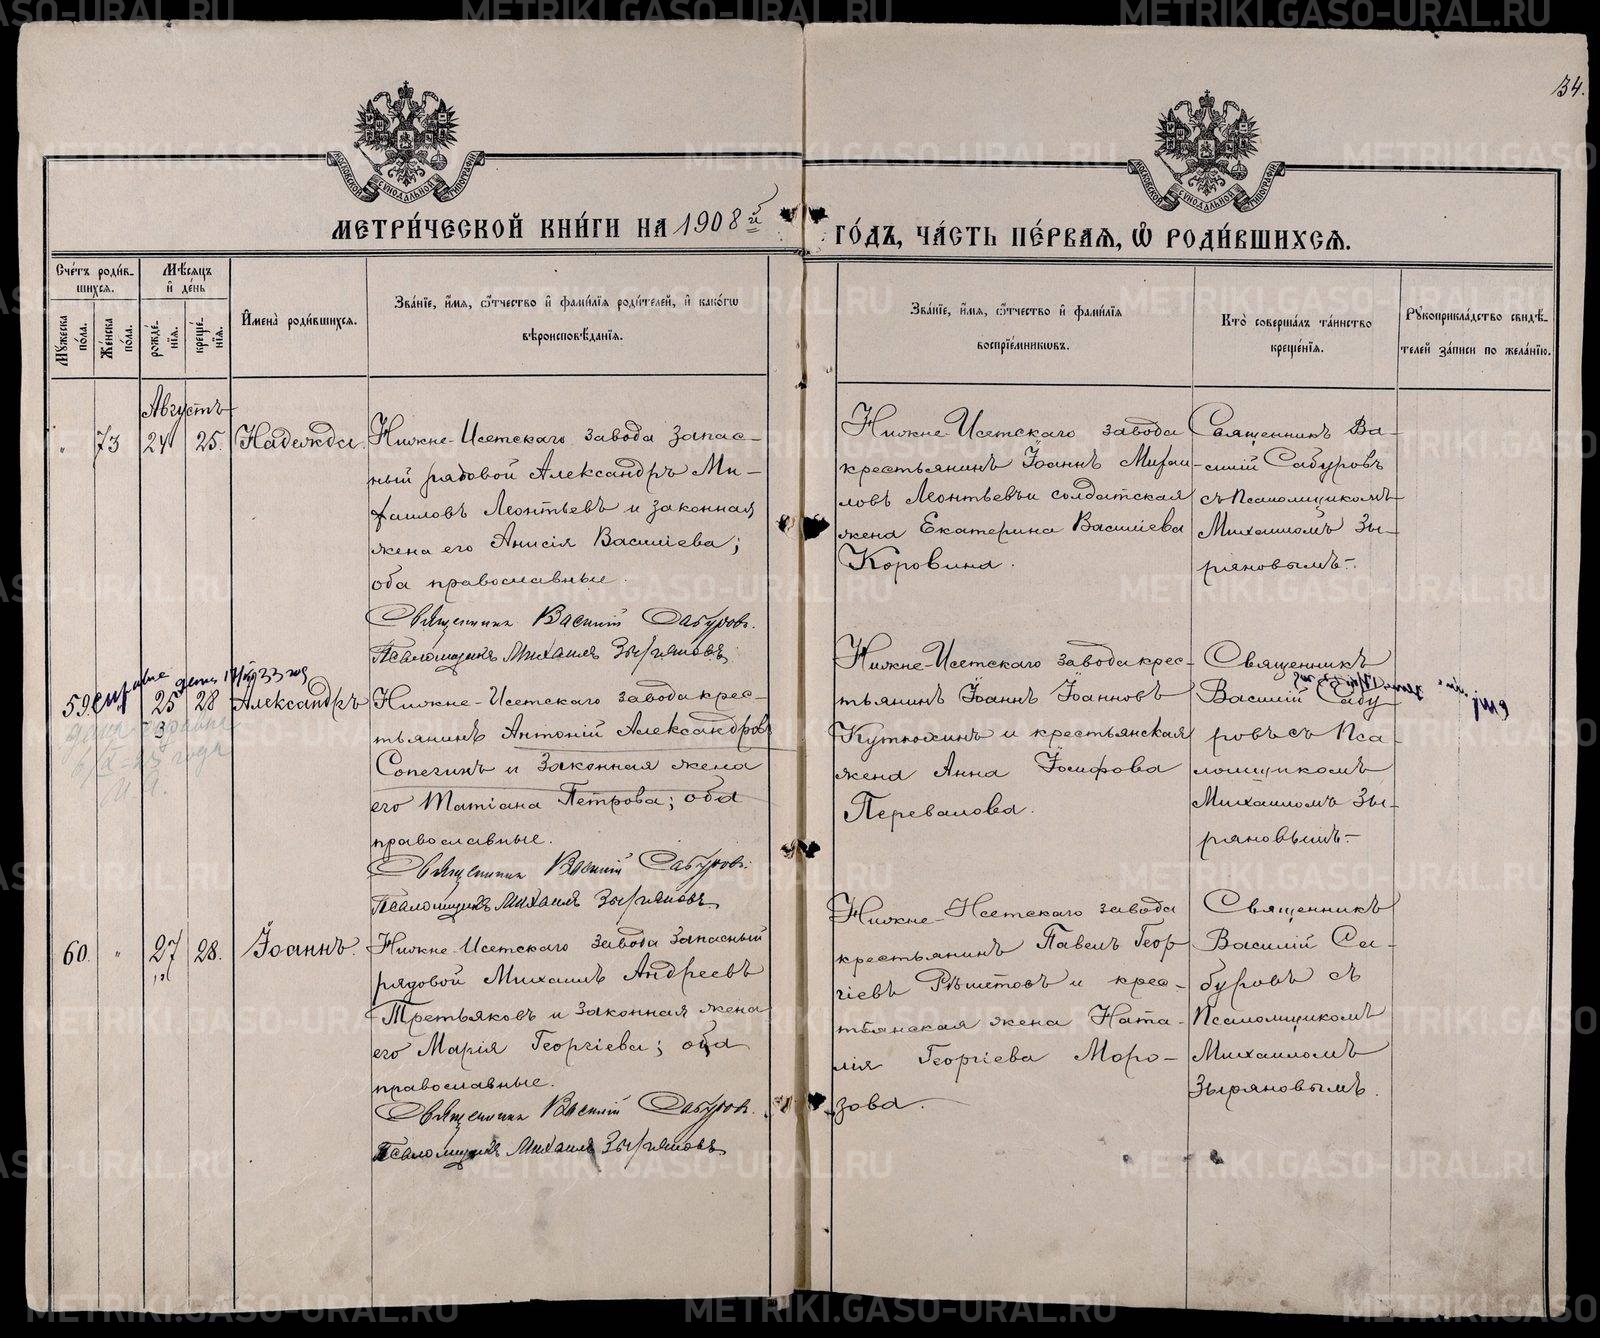 34.
МОСКОВСКОЙ СѴНОДАЛЬНОЙ ТИПОГРАФІИ
МОСКОВСКОЙ СѴНОДАЛЬНОЙ ТИПОГРАФІИ
МЕТРИ́ЧЕСКОЙ КНИ́ГИ НА 1908й
ГО́ДЪ, ЧА́СТЬ ПЕ́РВАѦ, Ѽ РОДИ́ВШИХСѦ.
Сче́тъ роди́в-
шихсѧ.
Мꙋжеска по́ла.
Же́нска по́ла.
Мѣ́сѧцъ
и҆ де́нь
рожде́-
нїѧ.
креще́-
нїѧ.
И҆мена̀ роди́вшихсѧ.
Зва́нїе, и҆́мѧ, ѻ҆́тчество и҆ фами́лїѧ роди́телей, и҆ како́гѡ
вѣроисповѣ́данїѧ.
Зва́нїе, и҆́мѧ, ѻ҆́тчество и҆ фами́лїѧ
воспрїе́мникѡвъ.
Кто̀ соверша́лъ та́инство
креще́нїѧ.
Рꙋкоприкла́дство свидѣ́-
телей за́писи по жела́нїю.
Августъ
" 73 24 25. Надежда
Нижне-Исетскаго завода запас-
ный рядовой Александръ Ми-
хаиловъ Леонтьевъ и законная
жена его Анисія Василіева;
оба православные.
Священникъ Василій Сабуровъ.
Псаломщикъ Михаилъ Зыряновъ
Нижне-Исетскаго завода
крестьянинъ Іоаннъ Михаи-
ловъ Леонтьевъ и солдатская
жена Екатерина Василіева
Коровина.
Священникъ Ва-
силій Сабуровъ
съ Псаломщикомъ
Михаиломъ Зы-
ряновымъ.-
59. 25 28 Александръ
3
Нижне-Исетскаго завода крес-
тьянинъ Антоній Александровъ
Сопегинъ и законная жена
его Татіана Петрова; оба
православные.
Священникъ Василій Сабуровъ.
Псаломщикъ Михаилъ Зыряновъ
Нижне-Исетскаго завода крес-
тьянинъ Іоаннъ Іоанновъ
Кутюхинъ и крестьянская
жена Анна Іосифова
Перевалова.
Священникъ
Василій Сабу
ровъ съ Пса-
ломщикомъ
Михаиломъ Зы-
ряновымъ.-
60. " 27 28. Іоаннъ.
Нижне-Исетскаго завода запасный
рядовой Михаилъ Андреевъ
Третьяковъ и законная жена
его Марія Георгіева; оба
православные.
Священникъ Василій Сабуровъ.
Псаломщикъ Михаилъ Зыряновъ
Нижне-Исетскаго завода
крестьянинъ Павелъ Геор
гіевъ Рѣшетовъ и крес-
тьянская жена Ната-
лія Георгіева Моро-
зова.
Священникъ
Василій Са-
буровъ съ
Псаломщикомъ
Михаиломъ
Зыряновымъ.
METRIKI.GASO-URAL.RU